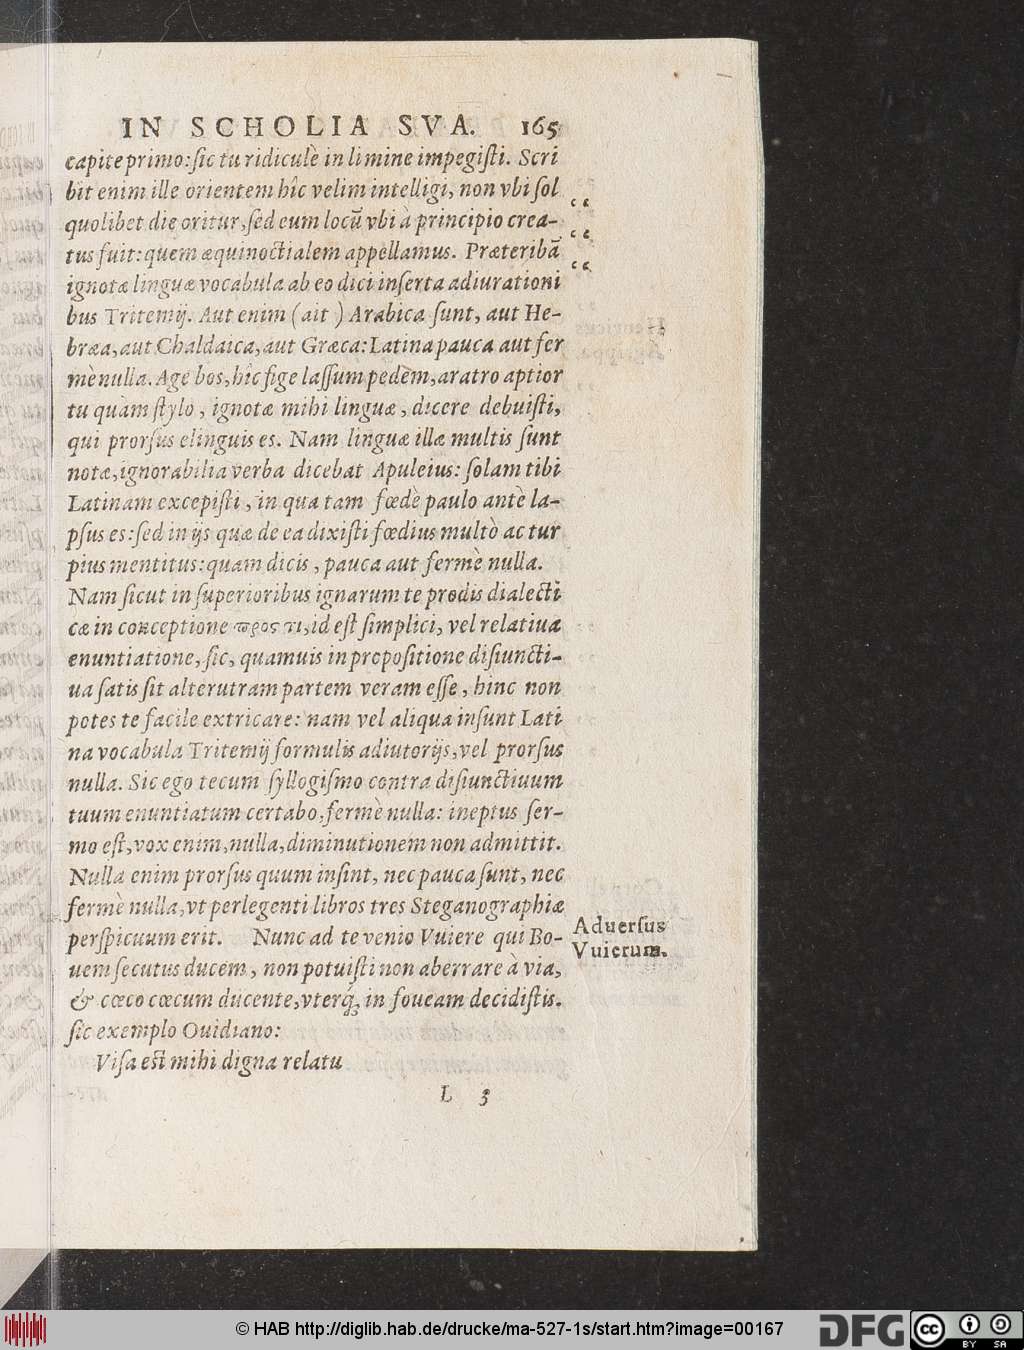 IN SCHOLIA SVA. 165
capite primo: sic tu ridiculè in limine impegiſti. Scri
bit enim ille orientem hîc velim intelligi, non vbi ſol
quolibet die oritur, ſed eum locū vbi à principio crea-
tus fuit: quem æquinoctialem appellamus. Præteribā
ignotæ linguæ vocabula ab eo dici inſerta adiurationi
bus Tritemij. Aut enim (ait) Arabica ſunt, aut He-
bræa, aut Chaldaica, aut Græca: Latina pauca aut fer
mè nulla. Age bos, hîc fige laſſum pedem, aratro aptior
tu quàm ſtylo, ignotæ mihi linguæ, dicere debuiſti,
qui prorſus elinguis es. Nam linguæ illæ multis ſunt
notæ, ignorabilia verba dicebat Apuleius: ſolam tibi
Latinam excepiſti, in qua tam fœdè paulo antè la-
pſus es: ſed in ijs quæ de ea dixiſti fœdius multò ac tur
pius mentitus: quam dicis, pauca aut fermè nulla.
Nam ſicut in ſuperioribus ignarum te prodis dialecti
cæ in conceptione προς τι, id eſt ſimplici, vel relatiua
enuntiatione, ſic, quamuis in propoſitione diſiuncti-
ua ſatis ſit alterutram partem veram eſſe, hinc non
potes te facile extricare: nam vel aliqua inſunt Lati
na vocabula Tritemij formulis adiutorijs, vel prorſus
nulla. Sic ego tecum ſyllogiſmo contra diſiunctiuum
tuum enuntiatum certabo, fermè nulla: ineptus ſer-
mo eſt, vox enim, nulla, diminutionem non admittit.
Nulla enim prorſus quum inſint, nec pauca ſunt, nec
fermè nulla, vt perlegenti libros tres Steganographiæ
perſpicuum erit. Nunc ad te venio Vuiere qui Bo-
uem ſecutus ducem, non potuiſti non aberrare à via,
& cœco cœcum ducente, vterq́; in foueam decidiſtis.
ſic exemplo Ouidiano:
Viſa eſt mihi digna relatu
L 3
“
“
“
Aduerſus
Vuierum.
© HAB http://diglib.hab.de/drucke/ma-527-1s/start.htm?image=00167
DFG
cc
BY SA